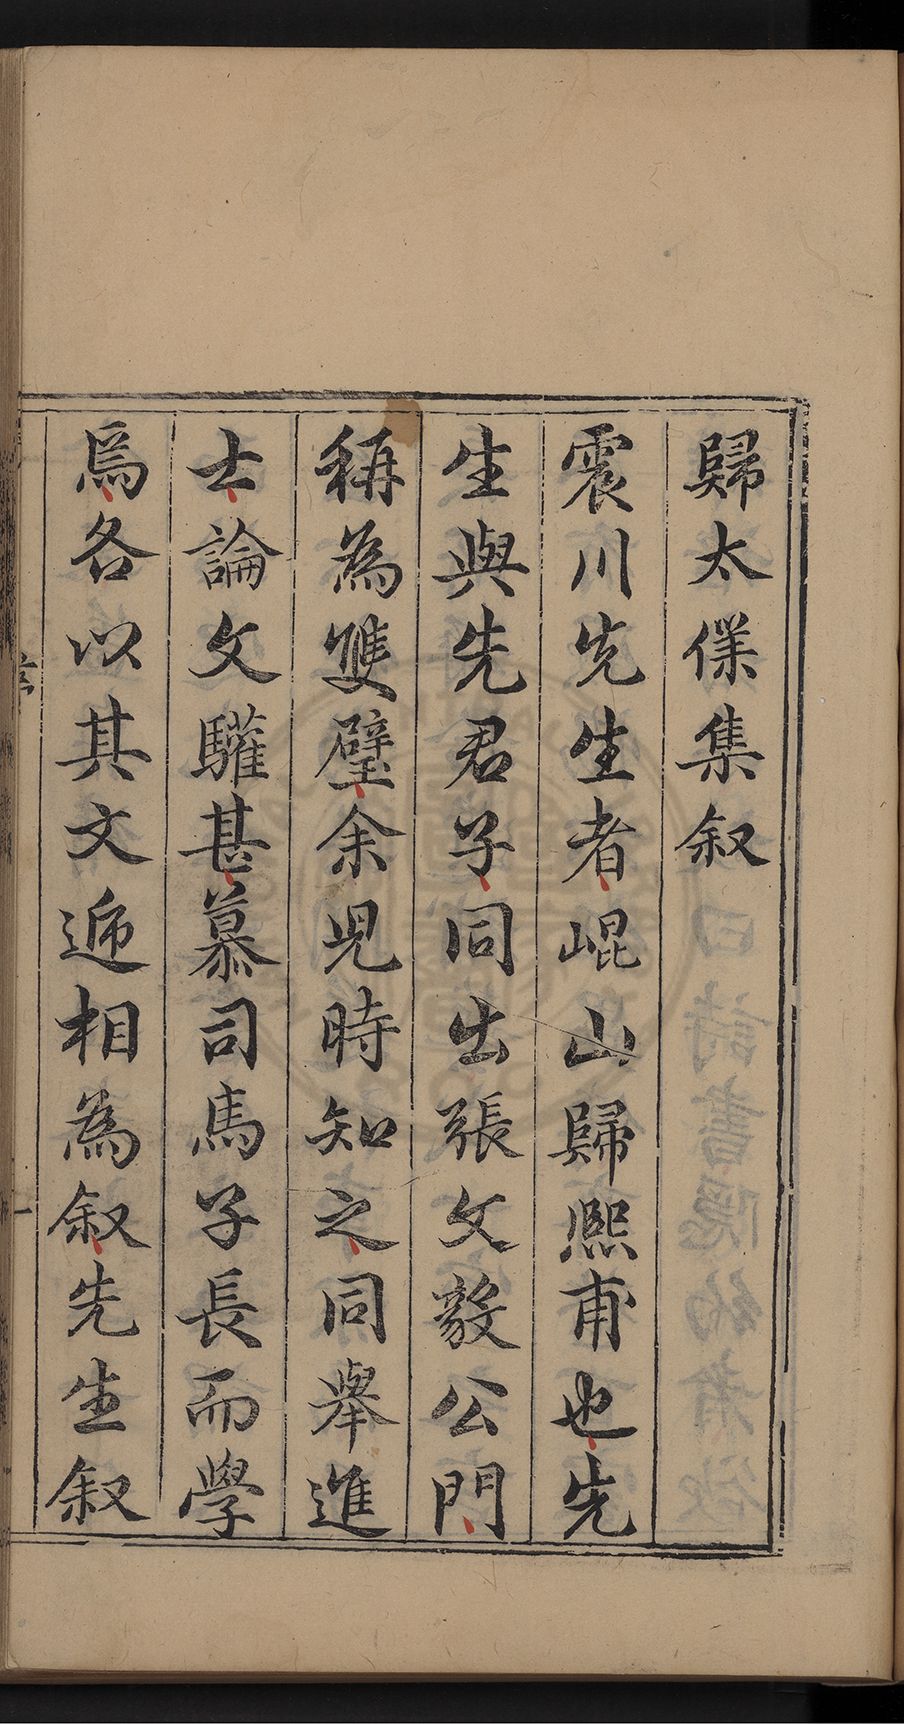 歸太僕集叙
震川先生者崐山歸熙甫也先
生與先君子同出張文毅公門
稱為雙璧余児時知之同舉進
士論文驩甚慕司馬子長而學
焉各以其文遞相為叙先生叙